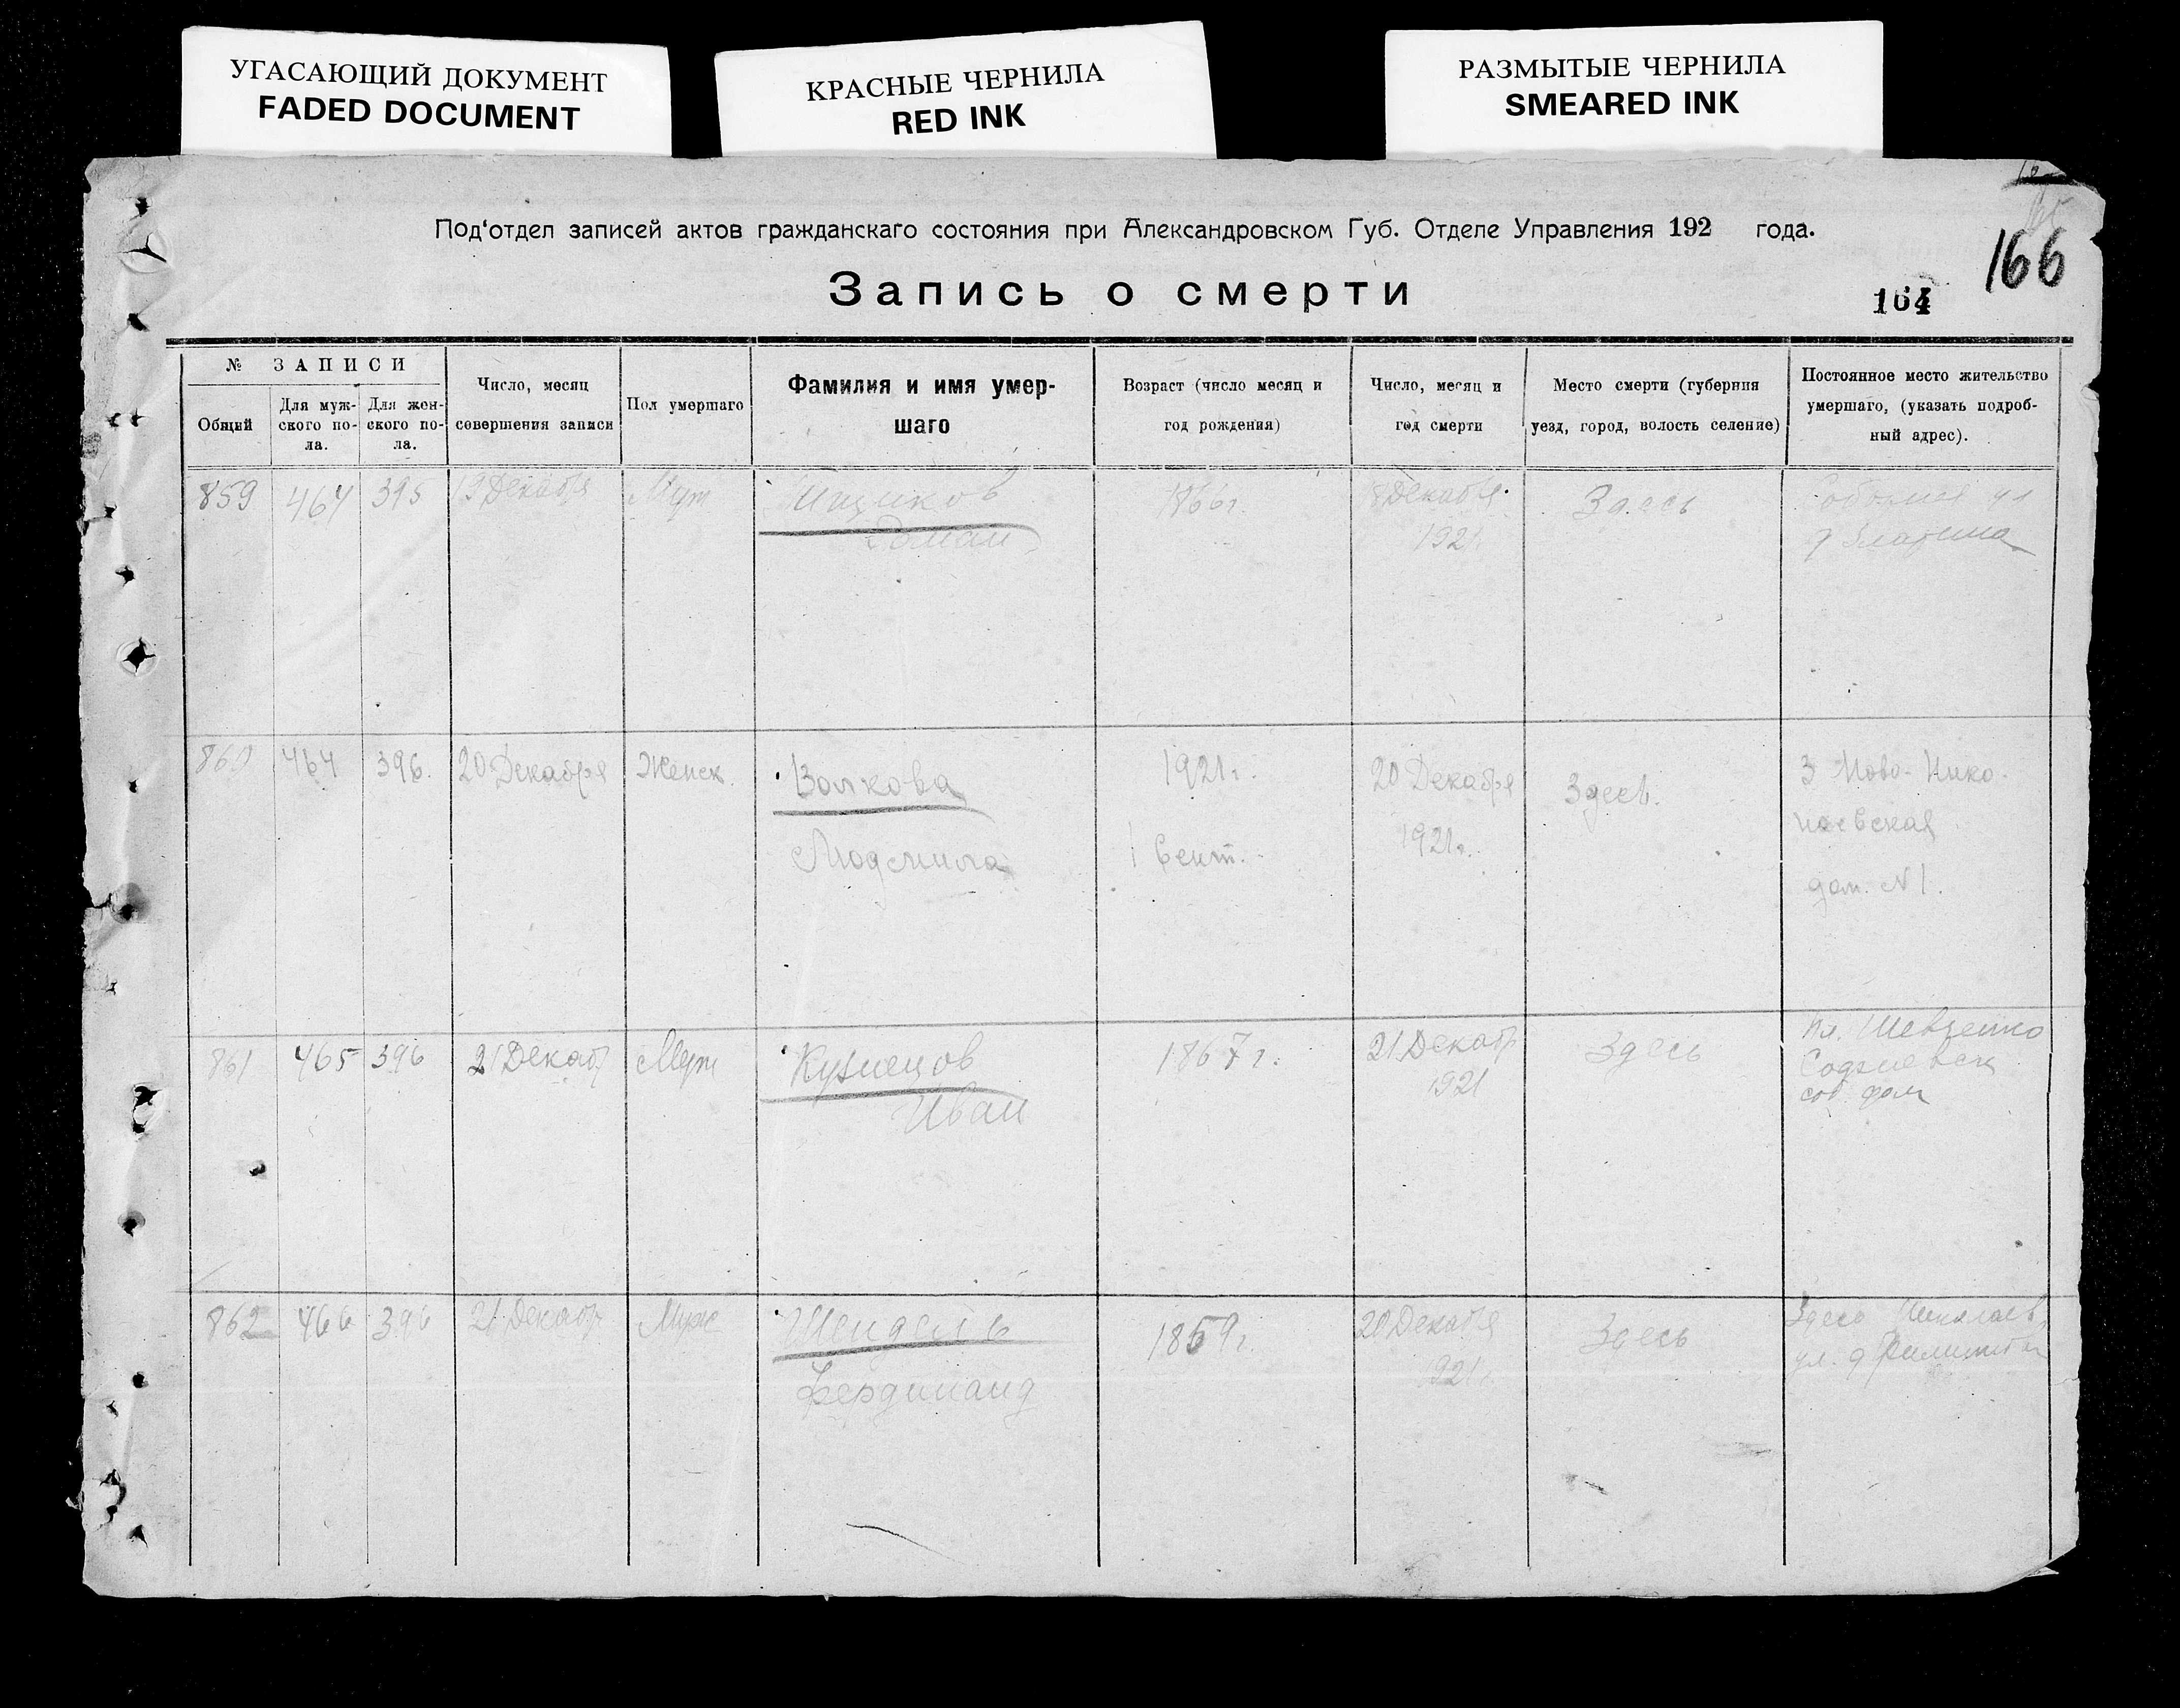 УГАСАЮЩИЙ ДОКУМЕНТ
FADED DOCUMENT
КРАСНЫЕ ЧЕРНИЛА
RED INK
РАЗМЫТЫЕ ЧЕРНИЛА
SMEARED INK
Под‘отдел записей актов гражданскаго состояния при Александровском Губ. Отделе Управления 192 года.
166
Запись о смерти
164
№ ЗАПИСИ
Общий
Для муж-
ского по-
ла.
Для жен-
ского по-
ла.
Число, месяц
совершения записи
Пол умершаго
Фамилия и имя умер-
шаго
Возраст (число месяц и
год рождения)
Число, месяц и
год смерти
Место смерти (губерния
уезд, город, волость селение)
Постоянное место жительство
умершаго, (указать подроб-
ный адрес).
859 464 395 19 Декабря Муж
1866 г. 18 Декабря
1921 г.
Здесь
860 464 396. 20 Декабря Женск.
Волкова
Людмила
1921 г.
1 Сент.
20 Декабря
1921 г.
Здесь.
3 Ново-Нико-
лаевская
дом. №1.
861 465 396 21 Декабр Муж
Кузнецов
Иван
1867 г.
21 Декабр
1921
Здесь
пл. Шевченко
соб. дом
862 466 396 21 Декабр Муж
Шендель
Фердинанд
1859 г.
20 Декабря
1921 г.
Здесь
Здесь Николаев.
ул. д